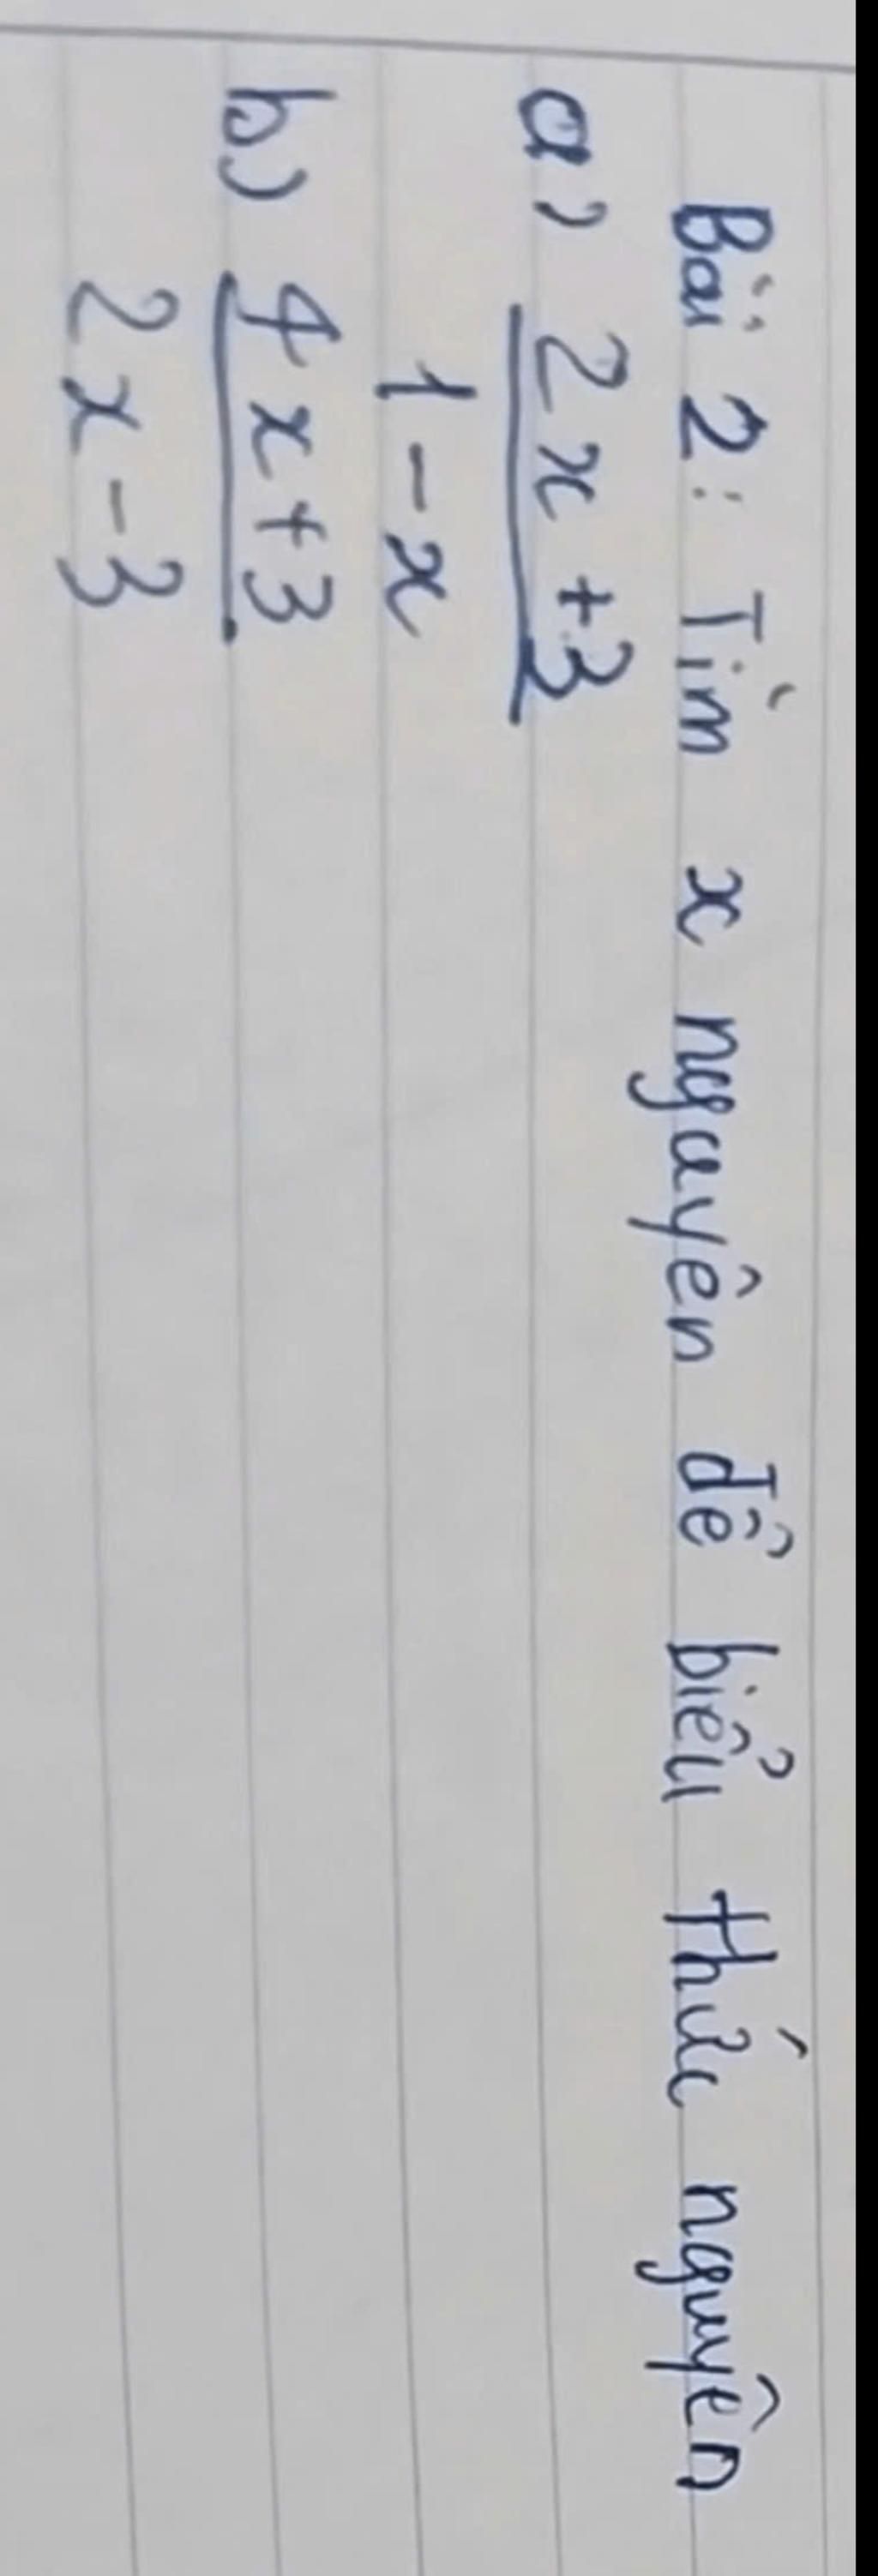 Bài 2: Tìm x nguyên để biểu thức nguyên
a) 2x + 3
1 - x
b) 4x + 3
2x - 3